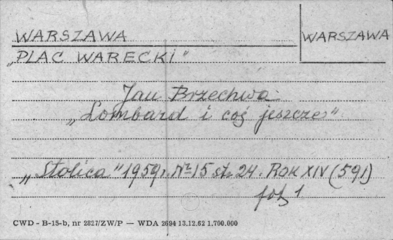 WARSZAWA
WARSZAWA
„PLAC WARECKI"
Jan Brzechwa
„Lombard i coś jeszcze"
„Stolica" 1959 r. Nr 15 st. 24. Rok XIV (591)
fot. 1
CWD - B-15-b, nr 2827/ZW/P — WDA 2694 13.12.62 1.700.000